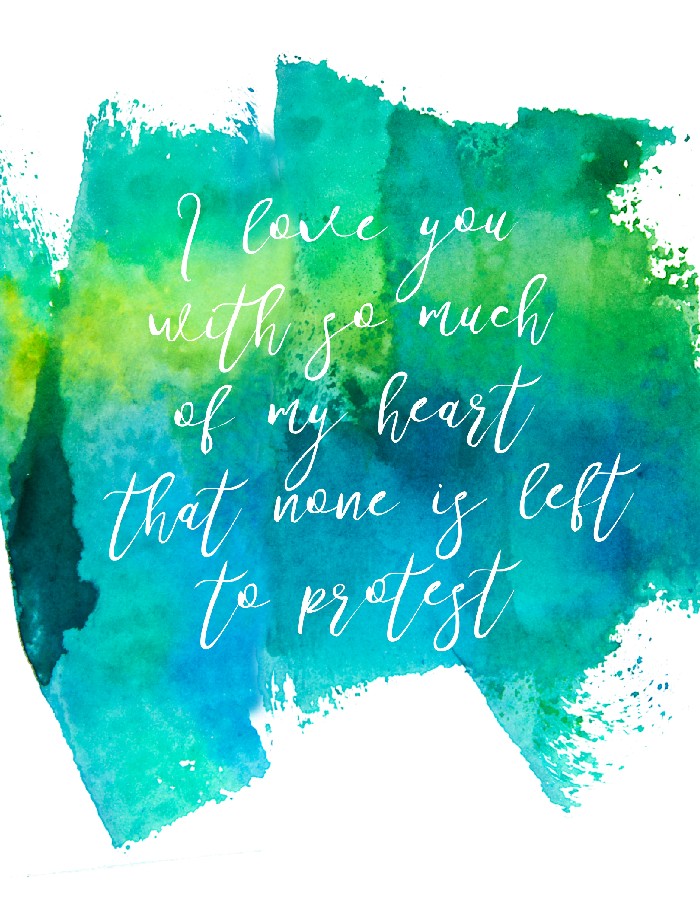 I love you
with so much
of my heart
that none is left
to protest